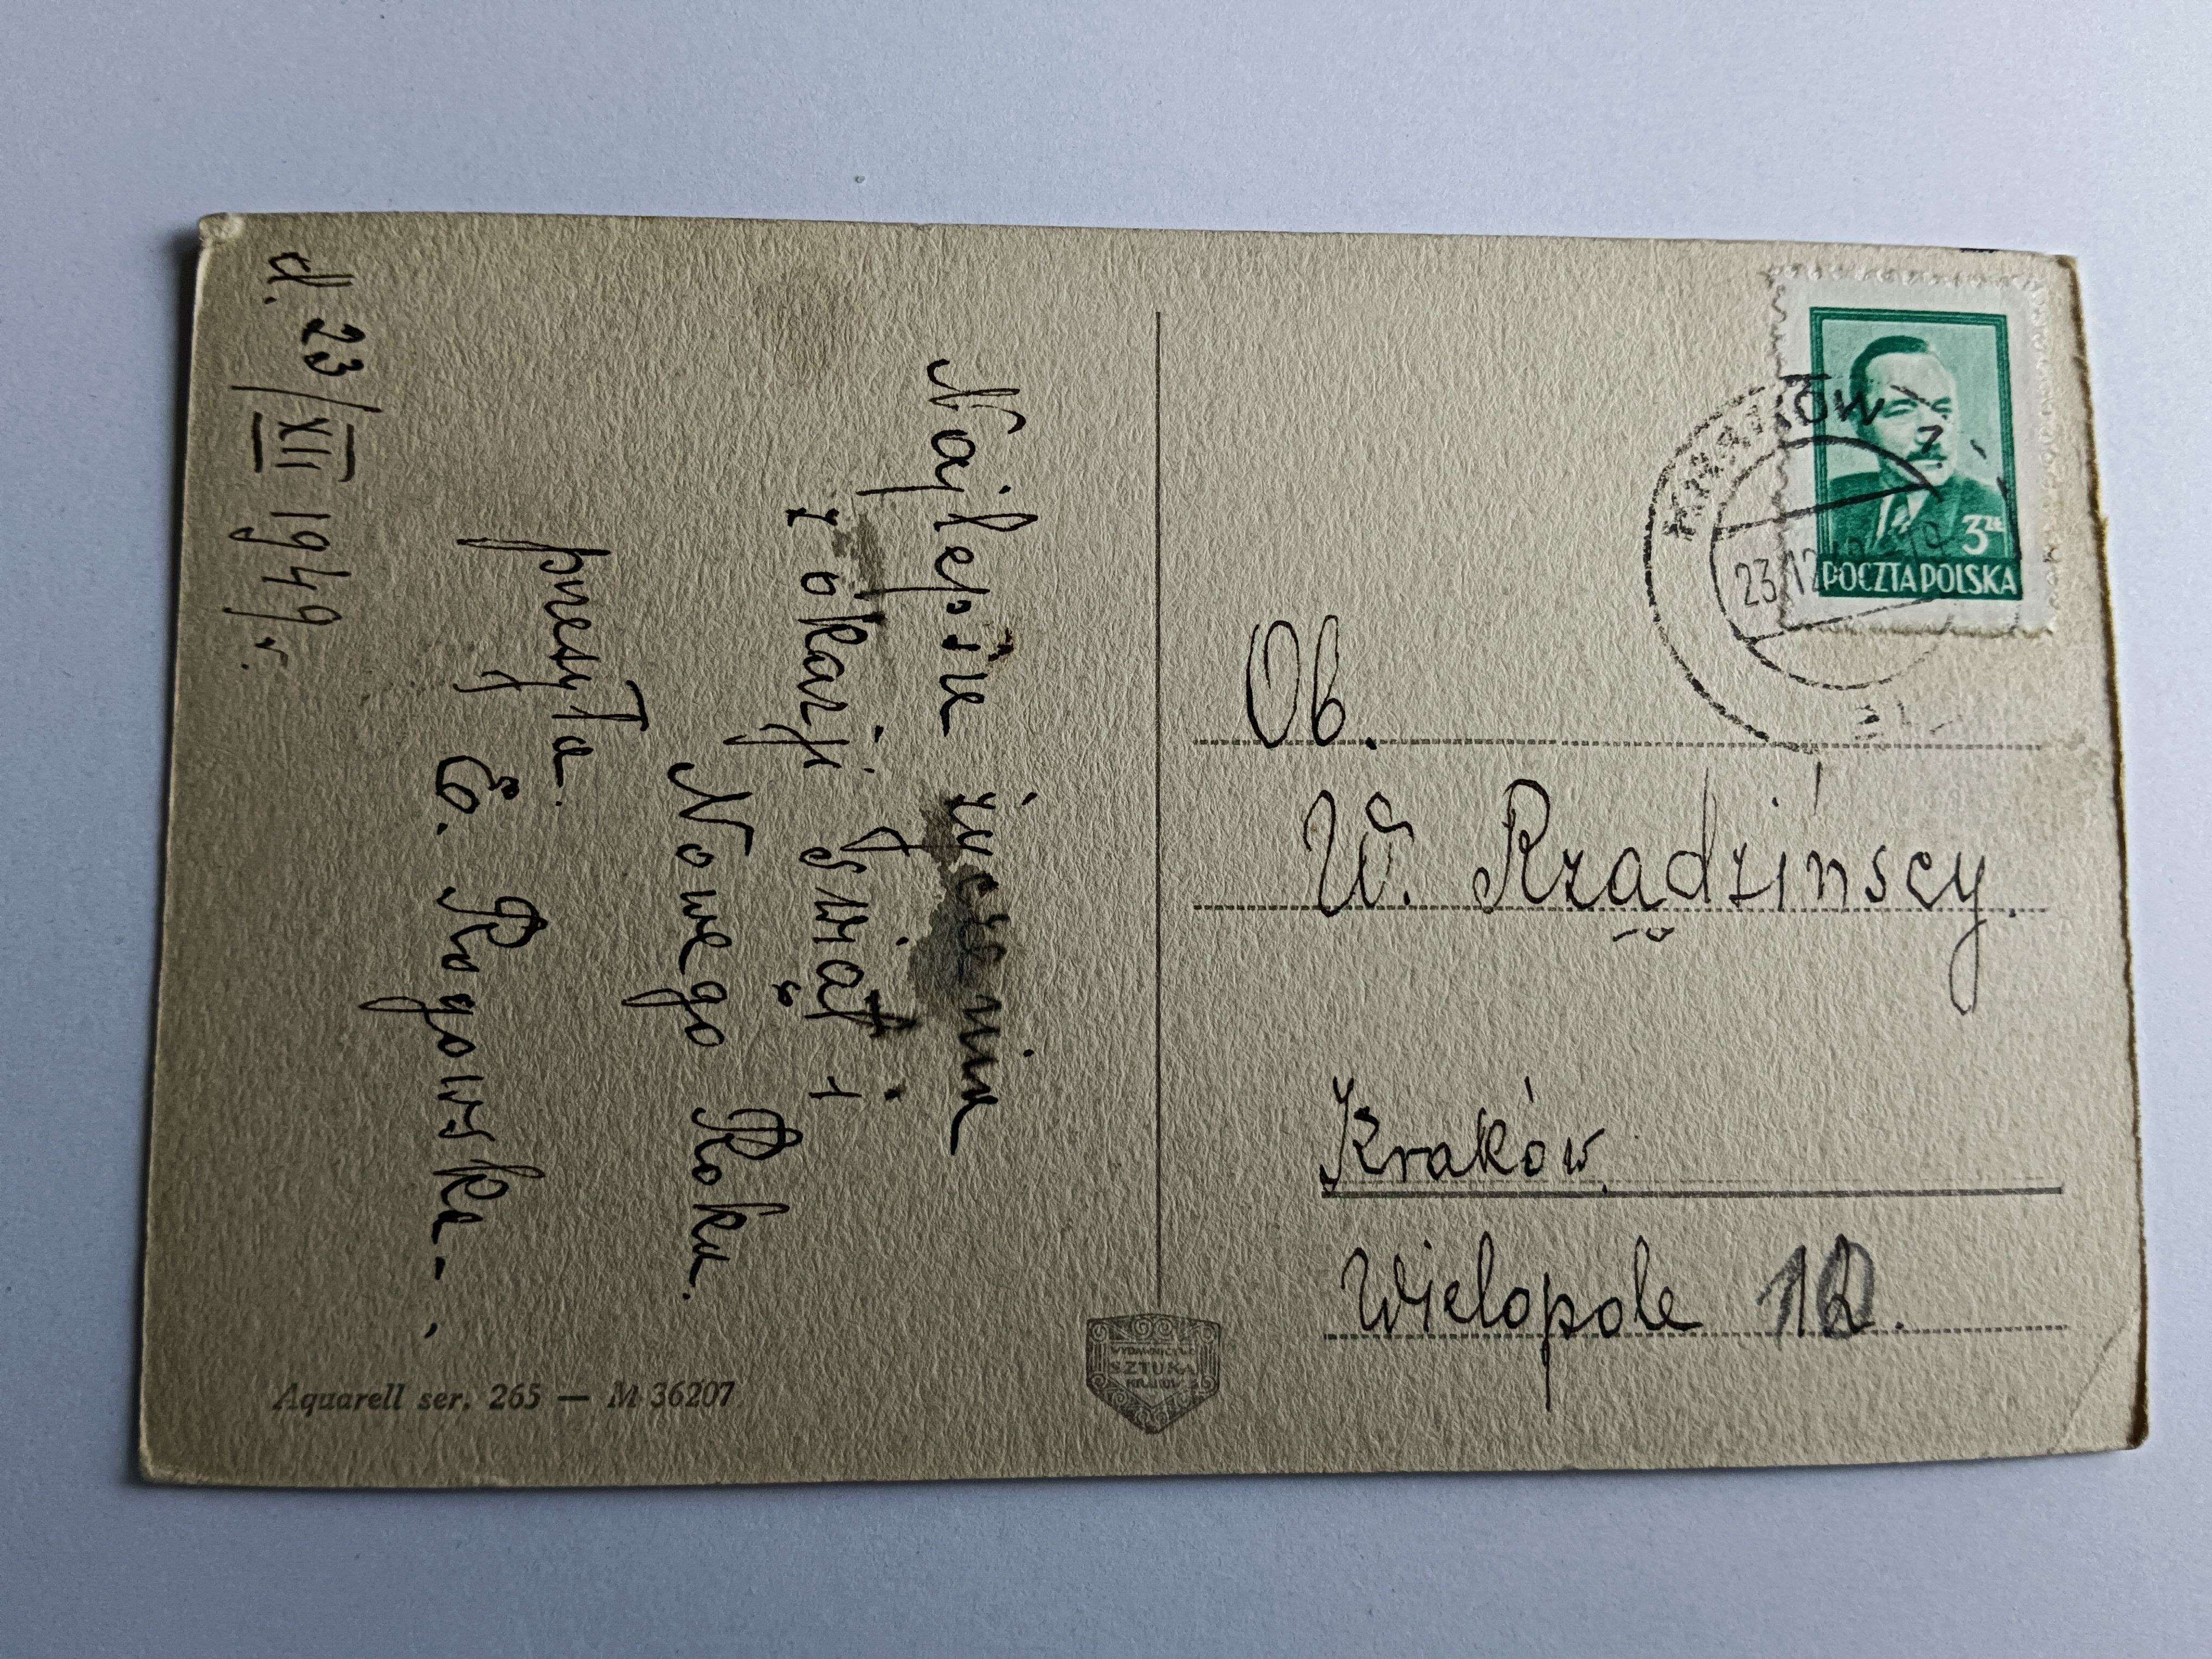 Najlepsze życzenia
z okazji Świąt i
Nowego Roku.
przesyła.
E. Rogowska-.
d. 23/XII 1949 r.
Aquarell ser. 265 — M 36207
WYDAWNICTWO
SZTUKA
KRAKÓW
KRAKÓW 2
23.12
3 zł
POCZTA POLSKA
Ob.
W. Rządzińscy.
Kraków.
Wielopole